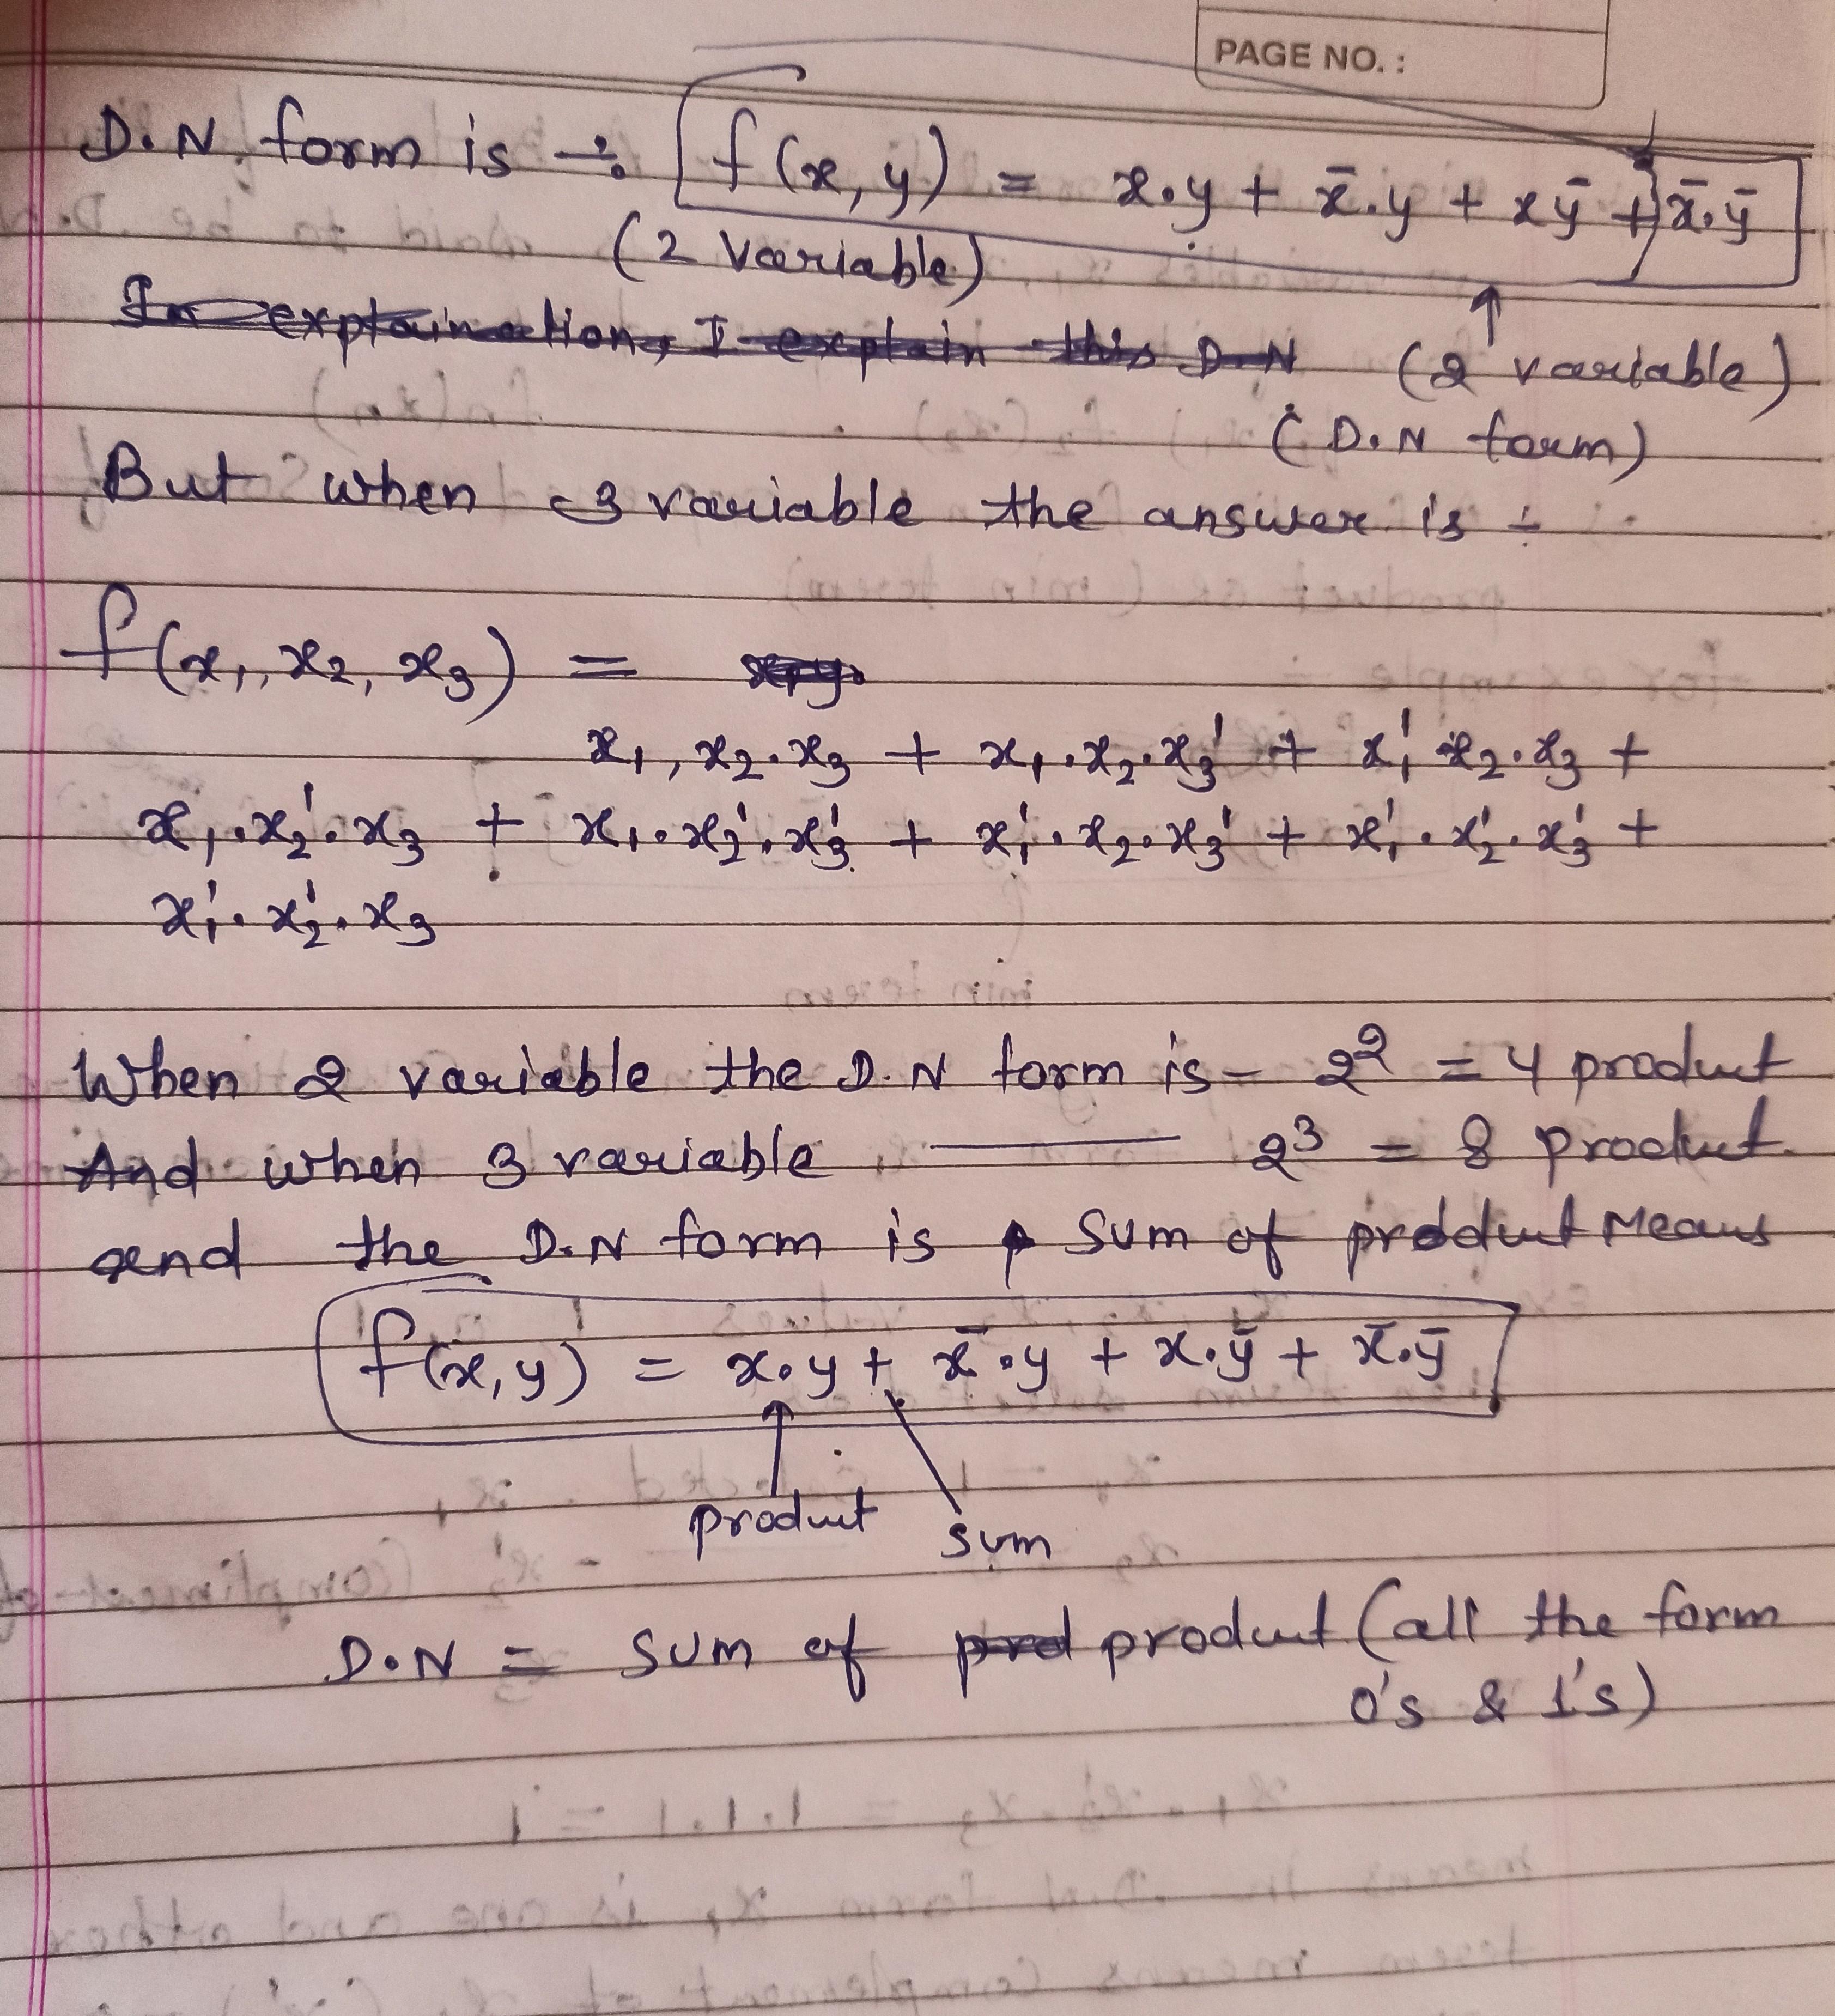 PAGE NO. :
D.N. form is ÷ f(x, y) = x.y + x̄.y + xȳ + x̄.ȳ
(2 variable)
In explaination, I explain this D.N (2 variable)
(D.N form)
But when 3 variable the answer is ÷
f(x₁, x₂, x₃) =
x₁, x₂.x₃ + x₁.x₂.x₃' + x₁' x₂.x₃ +
x₁.x₂'.x₃ + x₁.x₂'.x₃' + x₁'.x₂.x₃' + x₁'.x₂'.x₃' +
x₁'.x₂'.x₃
When 2 variable the D.N form is - 2² = 4 product
And when 3 variable —— 2³ = 8 product.
and the D.N form is sum of product Means
f(x, y) = x.y + x̄.y + x.ȳ + x̄.ȳ
product sum
D.N = sum of prod product (all the form
0's & 1's)